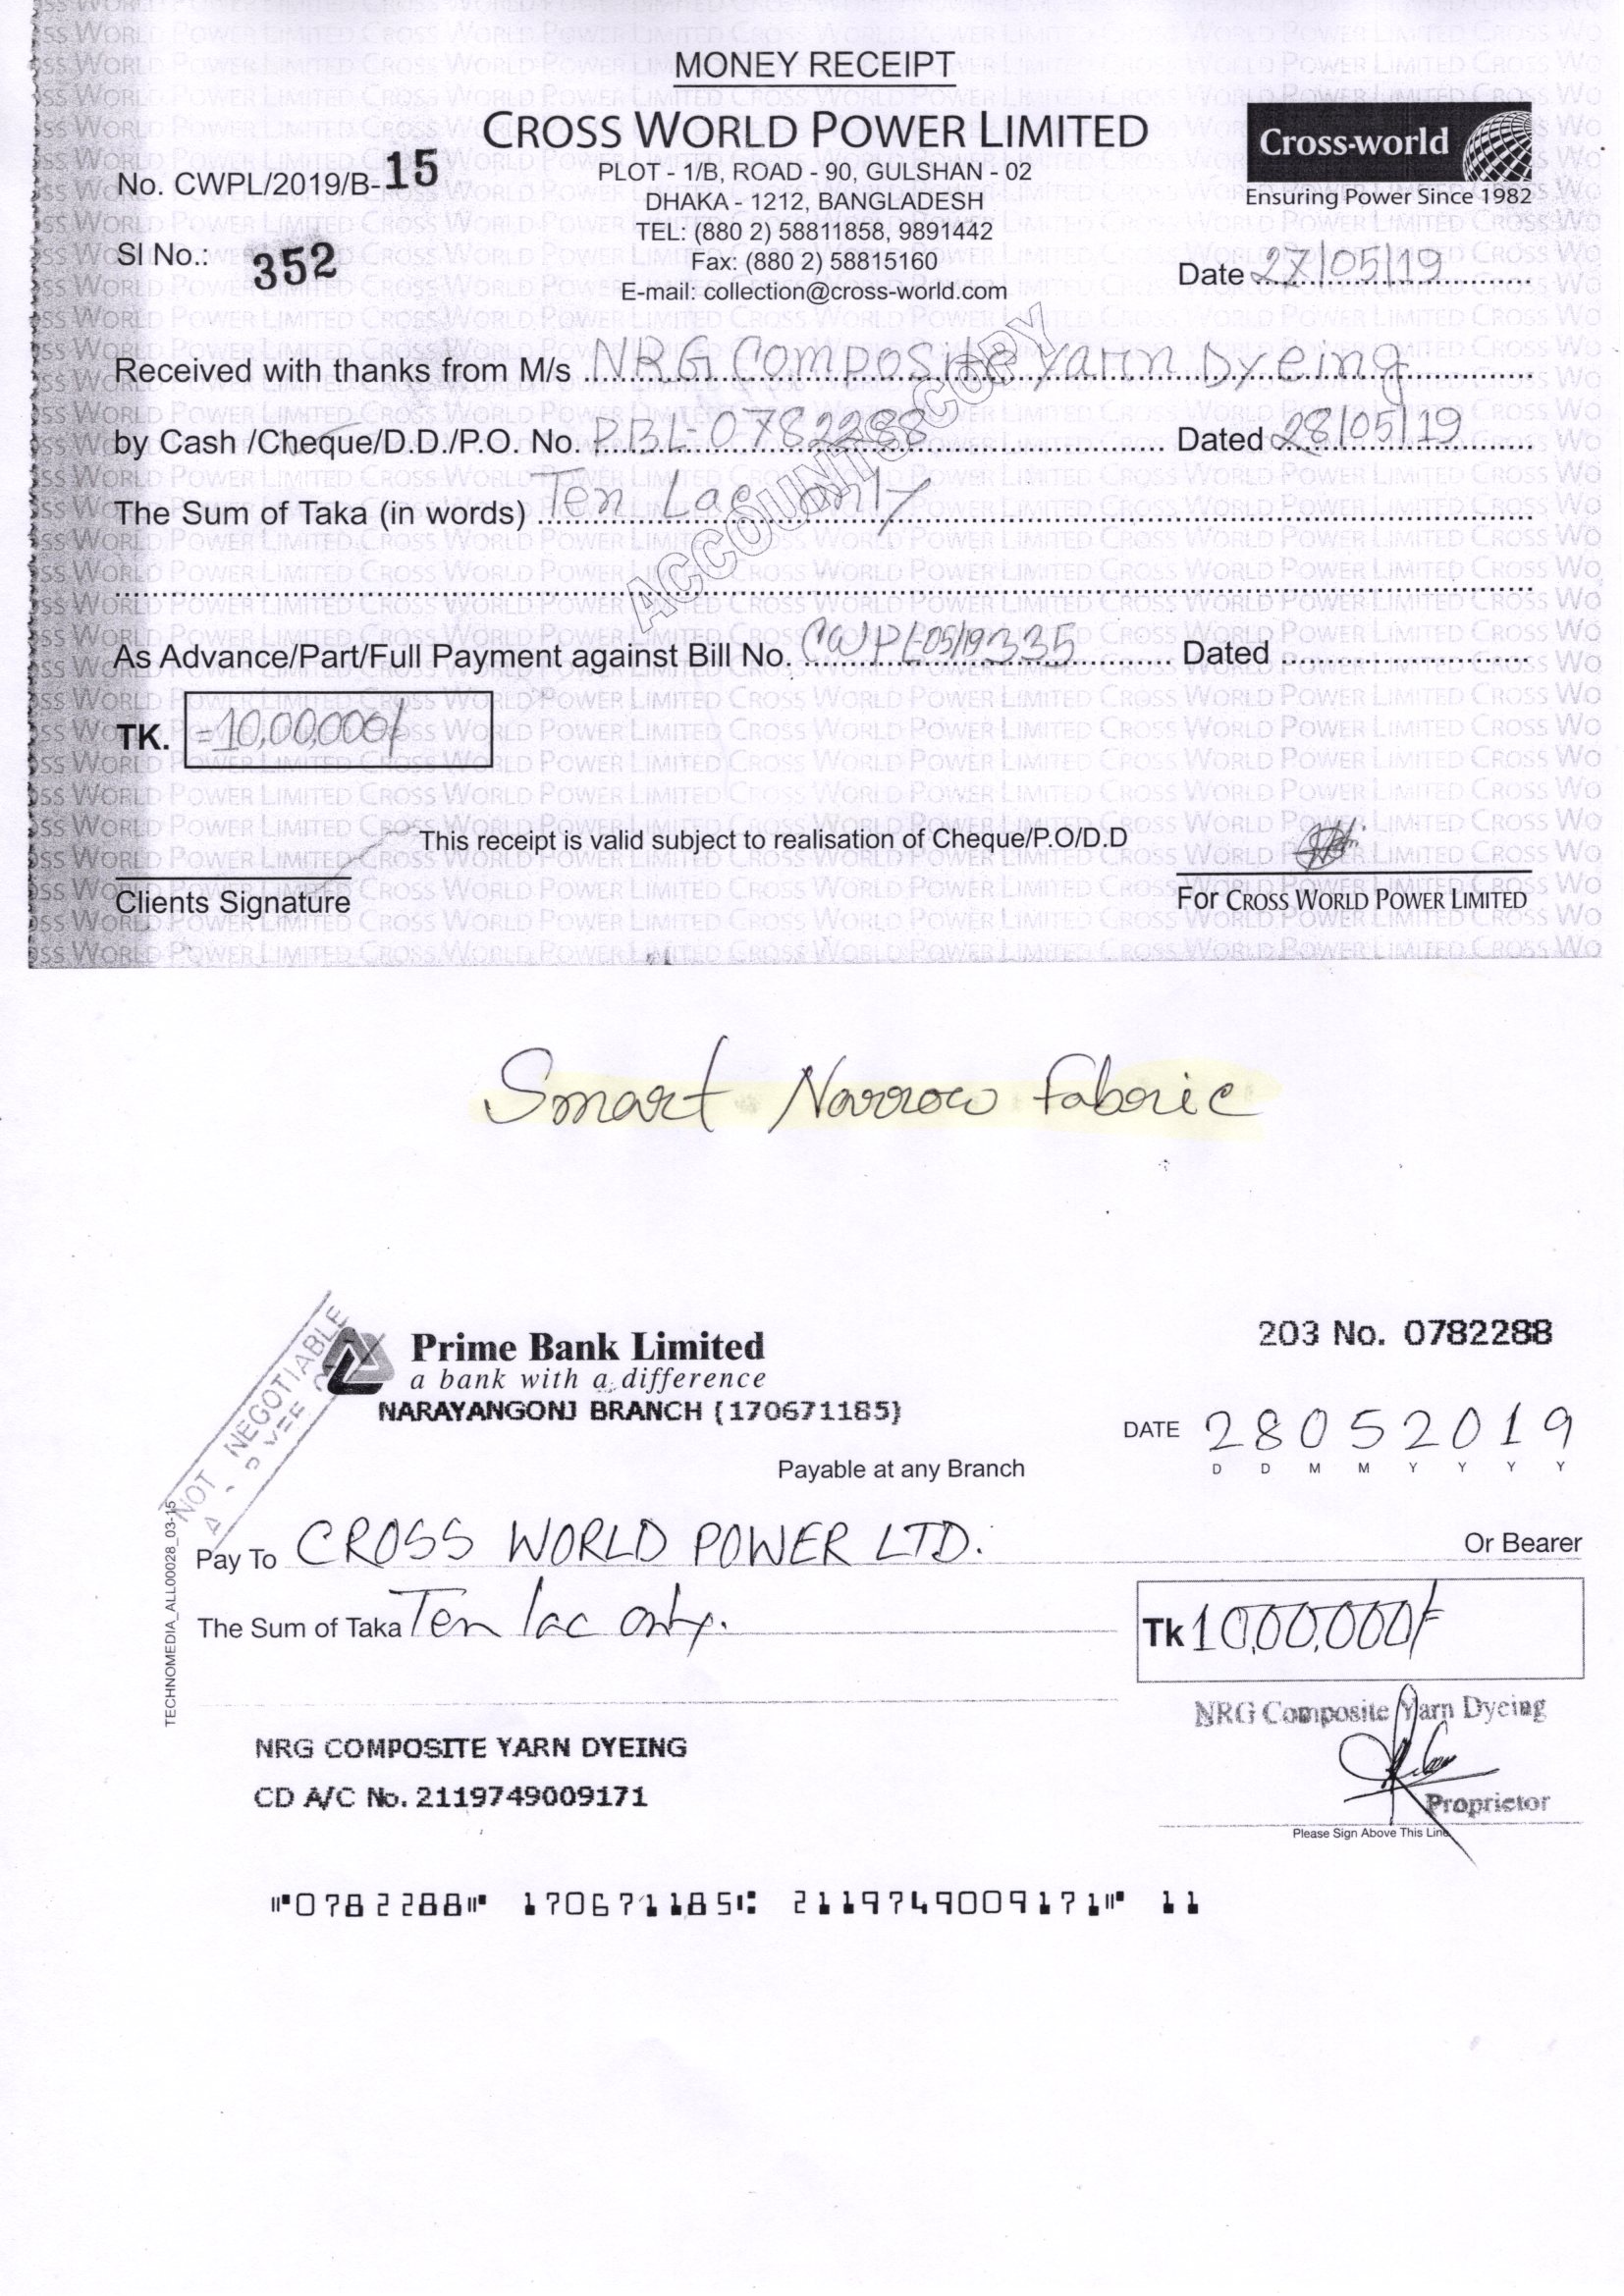 MONEY RECEIPT
CROSS WORLD POWER LIMITED
Cross-world
Ensuring Power Since 1982
No. CWPL/2019/B-15
PLOT - 1/B, ROAD - 90, GULSHAN - 02
DHAKA - 1212, BANGLADESH
TEL: (880 2) 58811858, 9891442
Sl No.: 352
Fax: (880 2) 58815160
E-mail: collection@cross-world.com
Date 27/05/19
Received with thanks from M/s NRG Composite Yarn Dyeing
by Cash /Cheque/D.D./P.O. No. PBL-0782288 Dated 28/05/19
The Sum of Taka (in words) Ten Lac only
ACCOUNTS COPY
As Advance/Part/Full Payment against Bill No. CWPL-05/19335 Dated
TK. =10,00,000/
This receipt is valid subject to realisation of Cheque/P.O/D.D
Clients Signature
For CROSS WORLD POWER LIMITED
Smart Narrow Fabric
NOT NEGOTIABLE
Prime Bank Limited
a bank with a difference
NARAYANGONJ BRANCH (170671185)
203 No. 0782288
DATE 28052019
D D M M Y Y Y Y
Payable at any Branch
Pay To CROSS WORLD POWER LTD. Or Bearer
The Sum of Taka Ten lac only. Tk 10,00,000/-
TECHNOMEDIA_ALL00028_03-15
NRG Composite Yarn Dyeing
NRG COMPOSITE YARN DYEING
CD A/C No. 2119749009171
Proprietor
Please Sign Above This Line
0782288 170671185 2119749009171 11